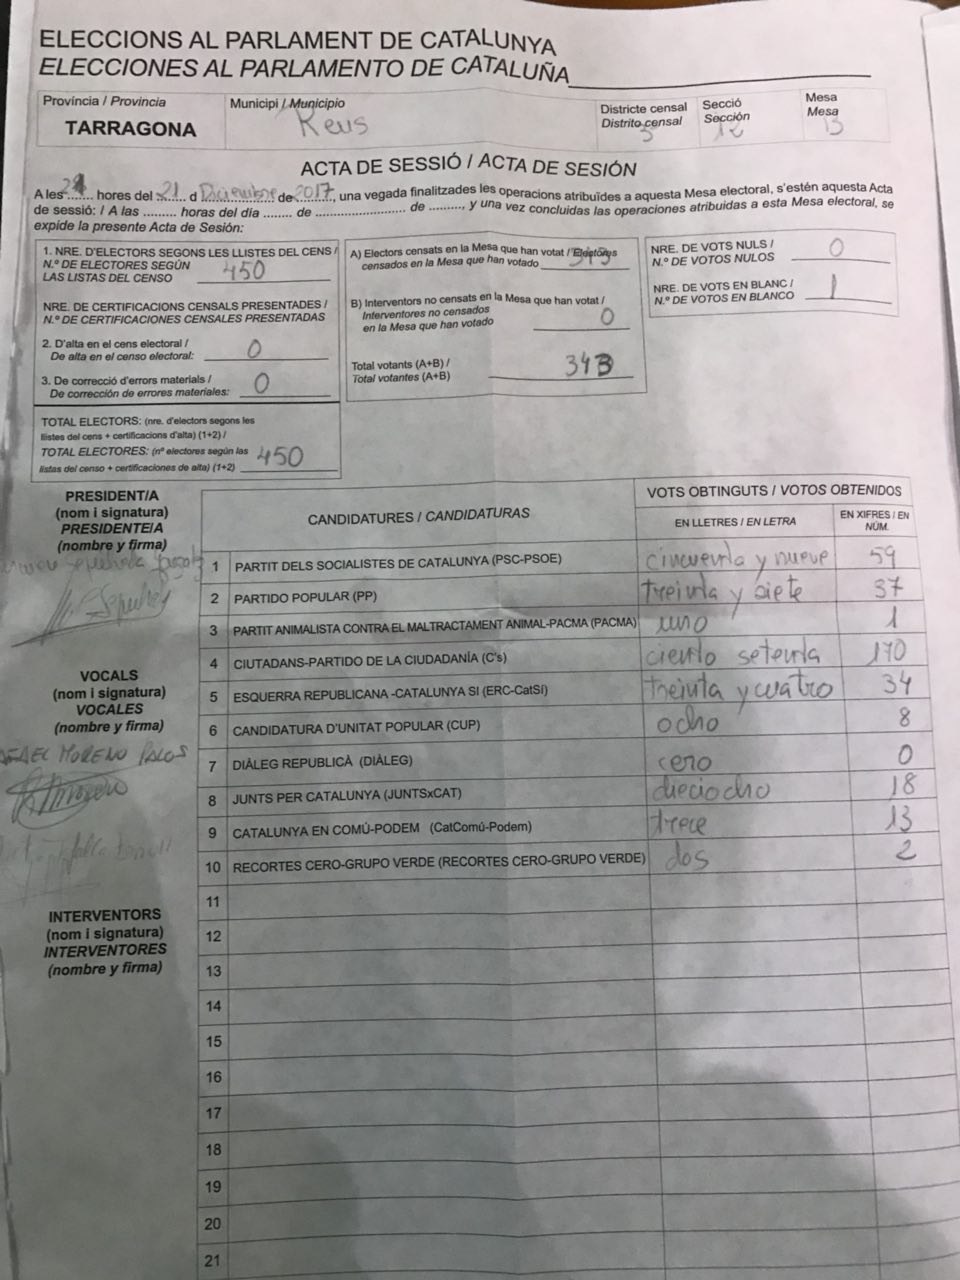 ELECCIONS AL PARLAMENT DE CATALUNYA
ELECCIONES AL PARLAMENTO DE CATALUÑA
Província / Provincia
TARRAGONA
Municipi / Municipio
Reus
Districte censal
Distrito censal
Secció
Sección
12
Mesa
Mesa
ACTA DE SESSIÓ / ACTA DE SESIÓN
A les ........ hores del 21 d Diciembre de 2017, una vegada finalitzades les operacions atribuïdes a aquesta Mesa electoral, s'estén aquesta Acta
de sessió: / A las ......... horas del día ........ de ........................ de ........., y una vez concluidas las operaciones atribuidas a esta Mesa electoral, se
expide la presente Acta de Sesión:
1. NRE. D'ELECTORS SEGONS LES LLISTES DEL CENS /
N.º DE ELECTORES SEGÚN
LAS LISTAS DEL CENSO 450
NRE. DE CERTIFICACIONS CENSALS PRESENTADES /
N.º DE CERTIFICACIONES CENSALES PRESENTADAS
2. D'alta en el cens electoral /
De alta en el censo electoral: 0
3. De correcció d'errors materials /
De corrección de errores materiales: 0
TOTAL ELECTORS: (nre. d'electors segons les
llistes del cens + certificacions d'alta) (1+2) /
TOTAL ELECTORES: (nº electores según las
listas del censo + certificaciones de alta) (1+2) 450
A) Electors censats en la Mesa que han votat / Electores
censados en la Mesa que han votado 343
B) Interventors no censats en la Mesa que han votat /
Interventores no censados
en la Mesa que han votado 0
Total votants (A+B) /
Total votantes (A+B) 343
NRE. DE VOTS NULS /
N.º DE VOTOS NULOS 0
NRE. DE VOTS EN BLANC /
N.º DE VOTOS EN BLANCO 1
PRESIDENT/A
(nom i signatura)
PRESIDENTE/A
(nombre y firma)
VOCALS
(nom i signatura)
VOCALES
(nombre y firma)
MORENO PALOS
INTERVENTORS
(nom i signatura)
INTERVENTORES
(nombre y firma)
CANDIDATURES / CANDIDATURAS
VOTS OBTINGUTS / VOTOS OBTENIDOS
EN LLETRES / EN LETRA
EN XIFRES / EN
NÚM.
1 PARTIT DELS SOCIALISTES DE CATALUNYA (PSC-PSOE) cincuenta y nueve 59
2 PARTIDO POPULAR (PP) treinta y siete 37
3 PARTIT ANIMALISTA CONTRA EL MALTRACTAMENT ANIMAL-PACMA (PACMA) uno 1
4 CIUTADANS-PARTIDO DE LA CIUDADANÍA (C's) ciento setenta 170
5 ESQUERRA REPUBLICANA -CATALUNYA SI (ERC-CatSí) treinta y cuatro 34
6 CANDIDATURA D'UNITAT POPULAR (CUP) ocho 8
7 DIÀLEG REPUBLICÀ (DIÀLEG) cero 0
8 JUNTS PER CATALUNYA (JUNTSxCAT) dieciocho 18
9 CATALUNYA EN COMÚ-PODEM (CatComú-Podem) trece 13
10 RECORTES CERO-GRUPO VERDE (RECORTES CERO-GRUPO VERDE) dos 2
11
12
13
14
15
16
17
18
19
20
21